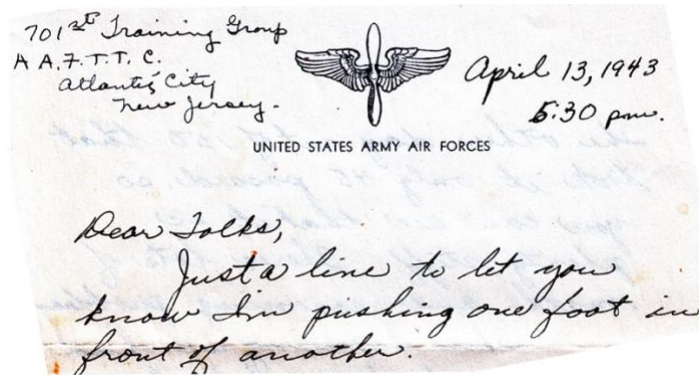 701st Training Group
A A.F.T.T.C.
Atlantic City
New Jersey.
April 13, 1943
5:30 pm.
UNITED STATES ARMY AIR FORCES
Dear Folks,
Just a line to let you
know I'm pushing one foot in
front of another.